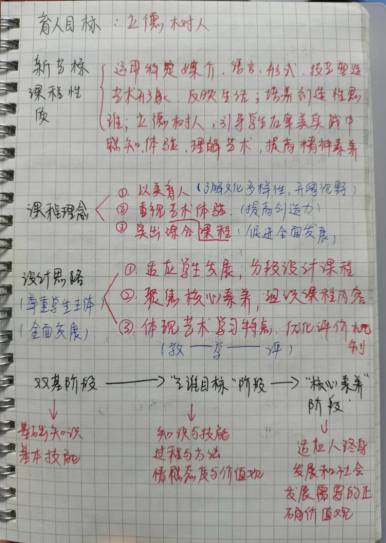 育人目标：立德树人
新艺标
课程性
质
运用特定媒介、语言、形式、技艺塑造
艺术形象、反映生活；培养创造性思
维；立德树人，引导学生在审美实践中
感知、体验、理解艺术，提高精神素养
课程理念
① 以美育人（了解文化多样性，开阔视野）
② 重视艺术体验（提高创造力）
③ 突出课分课程（促进全面发展）
设计思路
（尊重学生主体）
（全面发展）
① 适应学生发展，分段设计课程
② 聚焦核心素养，组织课程内容
③ 体现艺术学习特点，优化评价机制
（教——学——评）
双基阶段 → “三维目标”阶段 → “核心素养”
阶段
基础知识
基本技能
知识与技能
过程与方法
情感态度与价值观
适应人终身
发展和社会
发展需要的正
确价值观